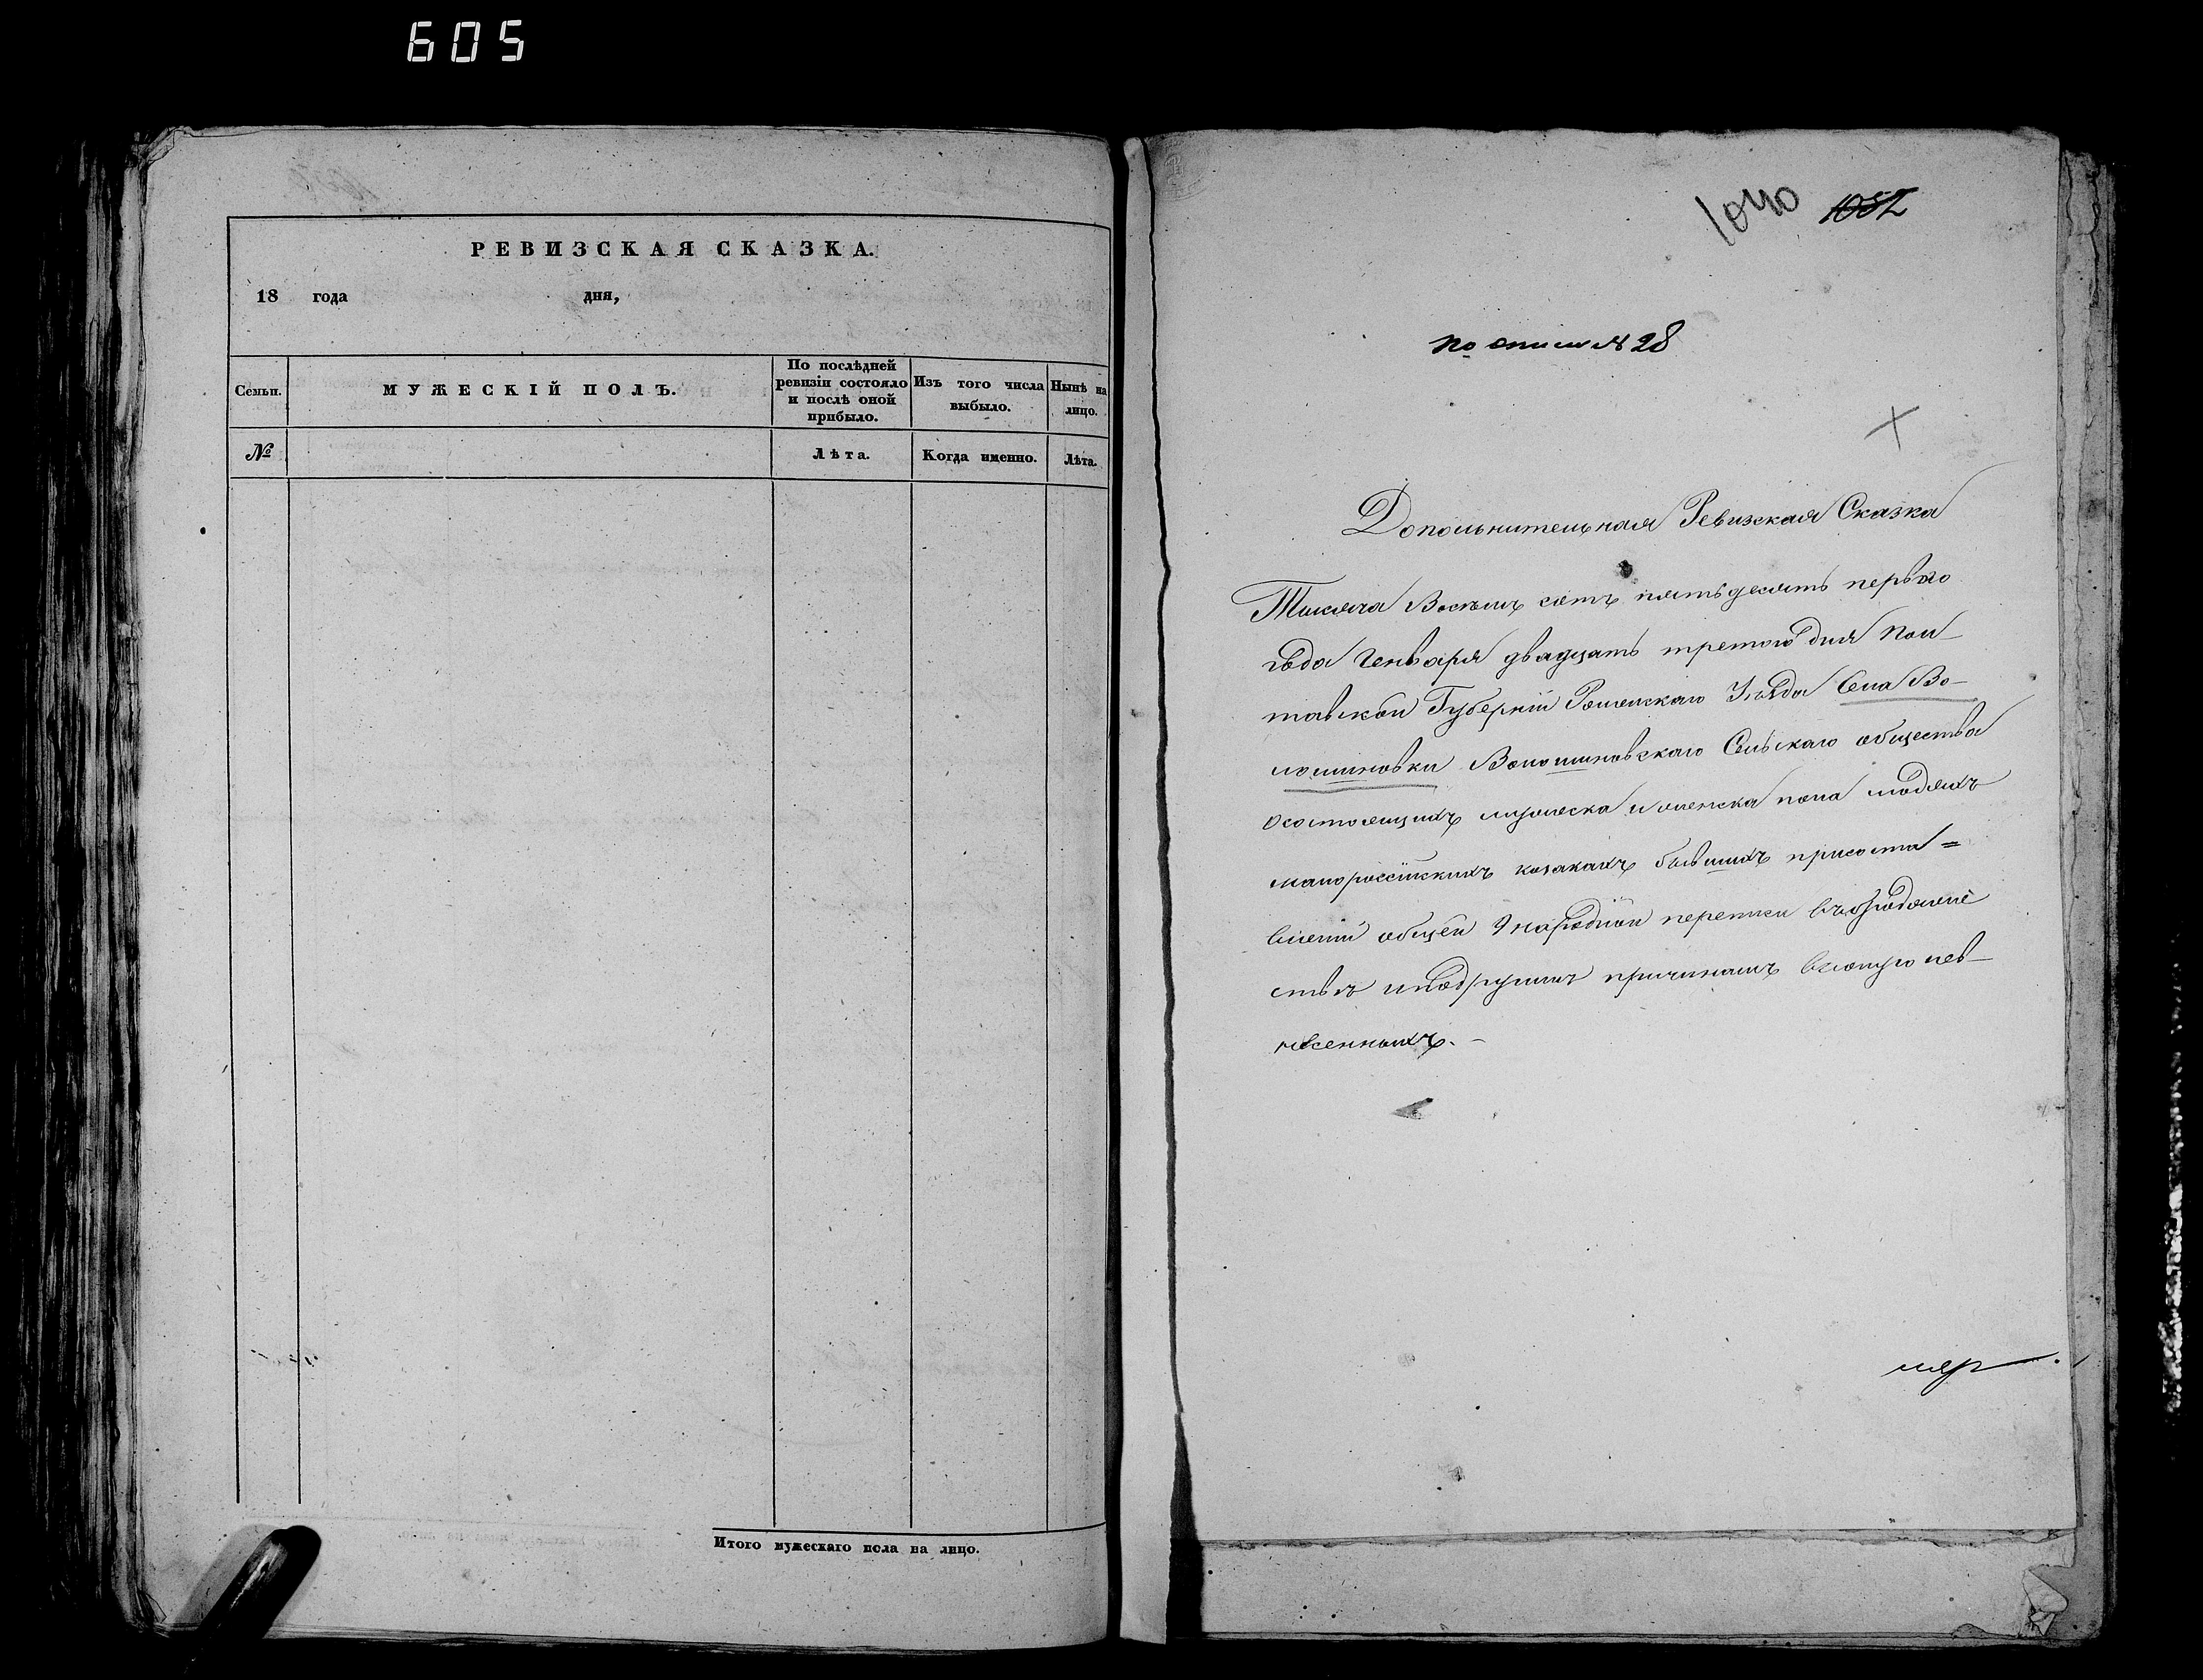 605
РЕВИЗСКАЯ СКАЗКА.
18 года дня,
Семьи.
МУЖЕСКІЙ ПОЛЪ.
По послѣдней
ревизіи состояло
и послѣ оной
прибыло.
Изъ того числа
выбыло.
Нынѣ на
лицо.
№
Лѣта.
Когда именно.
Лѣта.
Итого мужескаго пола на лицо.
1040 1052
по описи № 28
Дополнительная Ревизская Сказка
Тысяча Восемь сотъ пятьдесять перваго
года Генваря двадцать третого дня Пол-
тавской Губерніи Роменскаго Уѣзда Села Во-
лошиновки Волошиновскаго Сельскаго общества
осостоящихъ мужеска и женска пола людяхъ
малороссійскихъ козакахъ бывшихъ присоста=
вленіи общей 9 народной переписи
ствѣ и подругимъ причинамъ